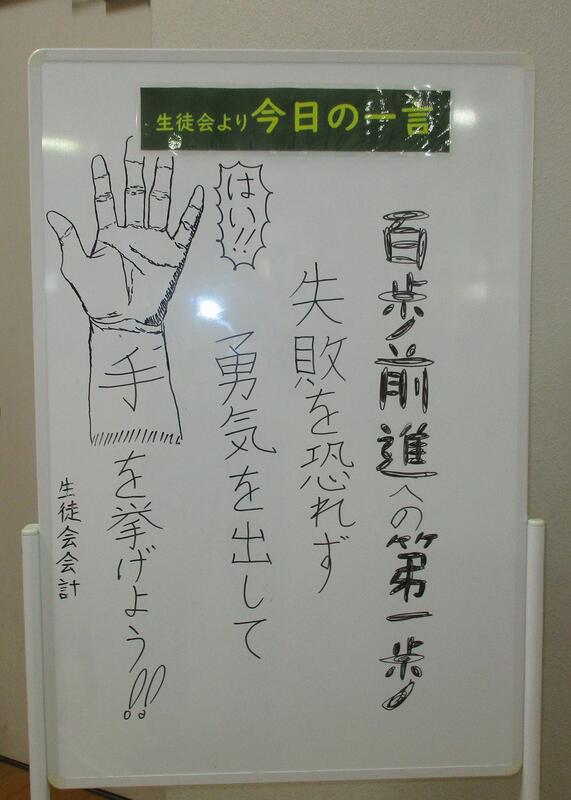 生徒会より 今日の一言
百歩前進への第一歩
失敗を恐れず
勇気を出して
はい!!
手を挙げよう!!
生徒会会計